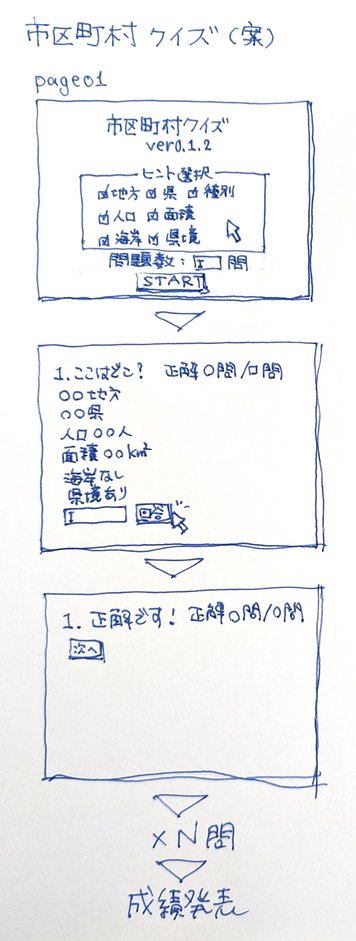 市区町村クイズ(案)
page01
市区町村クイズ
ver0.1.2
ヒント選択
☑地方 ☑県 ☑種別
☑人口 ☑面積
☑海岸 ☑県境
問題数: 問
START
1. ここはどこ? 正解〇問/〇問
〇〇地方
〇〇県
人口〇〇人
面積〇〇km²
海岸なし
県境あり
回答
1. 正解です! 正解〇問/〇問
次へ
×N問
成績発表